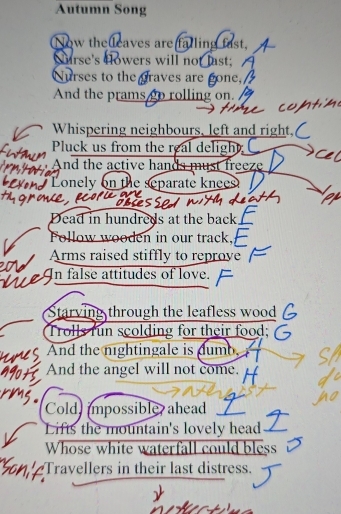 Autumn Song
Now the leaves are falling fast, A
Nurse's flowers will not last; A
Nurses to the graves are gone, B
And the prams go rolling on. B
→ time
Whispering neighbours, left and right, C
Pluck us from the real delight; C
And the active hands must freeze D
Lonely on the separate knees. D
beyond
obsessed with death
Dead in hundreds at the back E
Follow wooden in our track, E
Arms raised stiffly to reprove F
In false attitudes of love. F
Starving through the leafless wood G
Trolls run scolding for their food; G
And the nightingale is dumb, H
And the angel will not come. H
→ atheist
Cold, impossible, ahead I
Lifts the mountain's lovely head I
Whose white waterfall could bless J
Travellers in their last distress. J